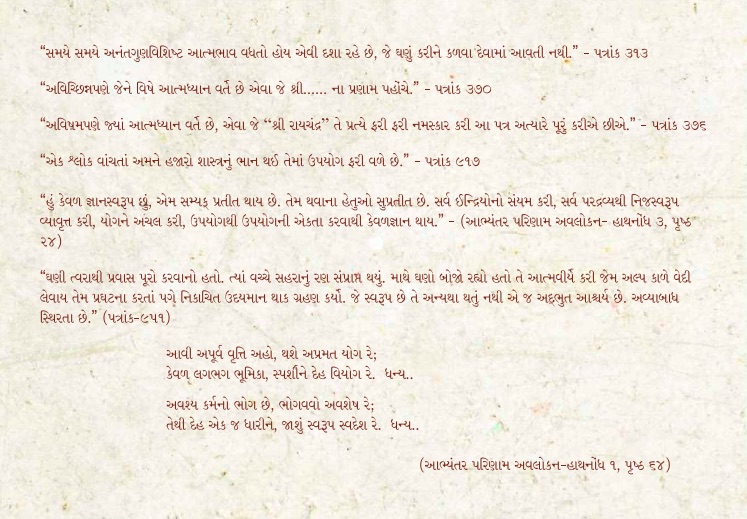 “સમયે સમયે અનંતગુણવિશિષ્ટ આત્મભાવ વધતો હોય એવી દશા રહે છે, જે ઘણું કરીને કળવા દેવામાં આવતી નથી.” - પત્રાંક ૩૧૩
“અવિચ્છિન્નપણે જેને વિષે આત્મધ્યાન વર્તે છે એવા જે શ્રી...... ના પ્રણામ પહોંચે.” - પત્રાંક ૩૭૦
“અવિષમપણે જ્યાં આત્મધ્યાન વર્તે છે, એવા જે “શ્રી રાયચંદ્ર” તે પ્રત્યે ફરી ફરી નમસ્કાર કરી આ પત્ર અત્યારે પૂરું કરીએ છીએ.” - પત્રાંક ૩૭૬
“એક શ્લોક વાંચતાં અમને હજારો શાસ્ત્રનું ભાન થઈ તેમાં ઉપયોગ ફરી વળે છે.” - પત્રાંક ૯૧૭
“હું કેવળ જ્ઞાનસ્વરૂપ છું, એમ સમ્યક્ પ્રતીત થાય છે. તેમ થવાના હેતુઓ સુપ્રતીત છે. સર્વ ઈન્દ્રિયોનો સંયમ કરી, સર્વ પરદ્રવ્યથી નિજસ્વરૂપ
વ્યાવૃત્ત કરી, યોગને અચલ કરી, ઉપયોગથી ઉપયોગની એકતા કરવાથી કેવળજ્ઞાન થાય.” - (આભ્યંતર પરિણામ અવલોકન- હાથનોંધ ૩, પૃષ્ઠ
૨૪)
“ઘણી ત્વરાથી પ્રવાસ પૂરો કરવાનો હતો. ત્યાં વચ્ચે સહરાનું રણ સંપ્રાપ્ત થયું. માથે ઘણો બોજો રહ્યો હતો તે આત્મવીર્યે કરી જેમ અલ્પ કાળે વેદી
લેવાય તેમ પ્રઘટના કરતાં પગે નિકાચિત ઉદયમાન થાક ગ્રહણ કર્યો. જે સ્વરૂપ છે તે અન્યથા થતું નથી એ જ અદ્ભુત આશ્ચર્ય છે. અવ્યાબાધ
સ્થિરતા છે.” (પત્રાંક-૯૫૧)
આવી અપૂર્વ વૃત્તિ અહો, થશે અપ્રમત યોગ રે;
કેવળ લગભગ ભૂમિકા, સ્પર્શીને દેહ વિયોગ રે. ધન્ય..
અવશ્ય કર્મનો ભોગ છે, ભોગવવો અવશેષ રે;
તેથી દેહ એક જ ધારીને, જાશું સ્વરૂપ સ્વદેશ રે. ધન્ય..
(આભ્યંતર પરિણામ અવલોકન-હાથનોંધ ૧, પૃષ્ઠ ૬૪)